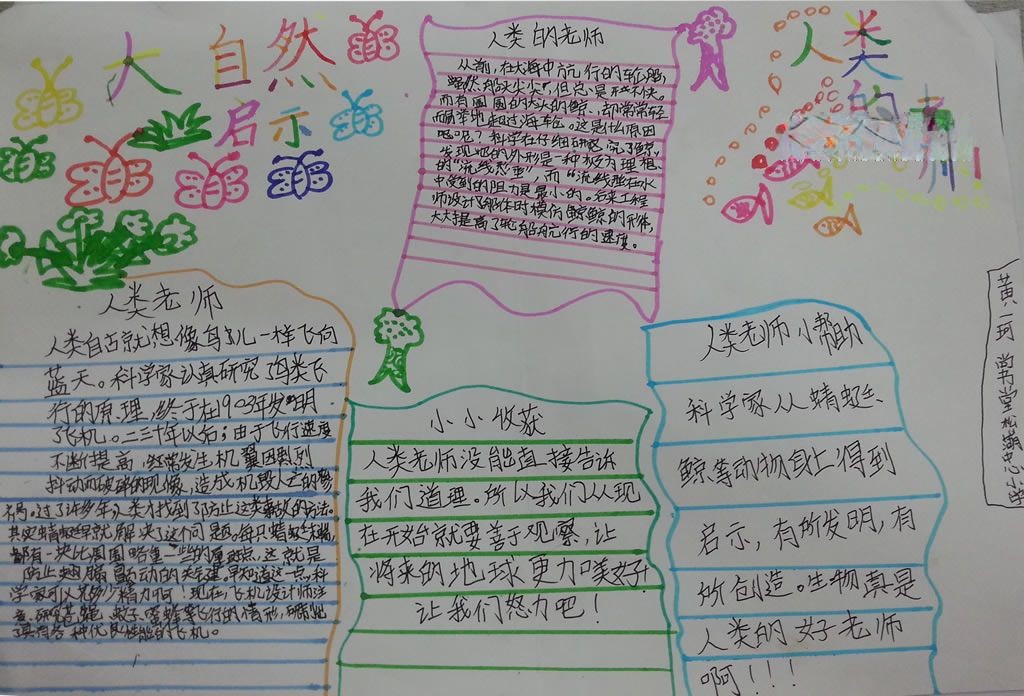 大自然
启示
人类的老师
人类的老师
从前，在大海中航行的轮船，
虽然船头尖尖，但总是开不快。
而有国国的大头的鲸，却常常轻
而举地超过海轮。这是什么原因
呢？科学在仔细研究了鲸，
发现它的外形是一种极为理想
的“流线型”，而“流线型在水
中受到的阻力是最小的。后来工程
师设计船体时模仿鲸的形体，
大大提高了轮船航行的速度。
人类老师
人类自古就想像鸟儿一样飞向
蓝天。科学家认真研究了鸟类飞
行的原理，终于在1903年发明
了飞机。二三十年以后；由于飞行速度
不断提高，经常发生机翼因剧烈
抖动而破碎的现像，造成机毁人亡的惨
祸。过了许多年人类才找到了防止这类事故的方法。
其实蜻蜓早就解决了这个问题。每只蜻蜓的翅
都有一块比周围略重一些的厚斑点，这就是
防止翅膀颤动的关键。早知道这一点，科
学家可以少费力啊！现在，飞机设计师注
意研究苍蝇、蚊子、蜜蜂等飞行的情形，研制出
了具有各种优良性能的飞机。
小小收获
人类老师没能直接告诉
我们道理。所以我们从现
在开始就要善于观察，让
将来的地球更加美好！
让我们怒力吧！
人类老师小帮助
科学家从蜻蜓、
鲸等动物身上得到
启示，有所发明，有
所创造。生物真是
人类的好老师
啊！！！
黄一珂 尚书堂松湖中心小学